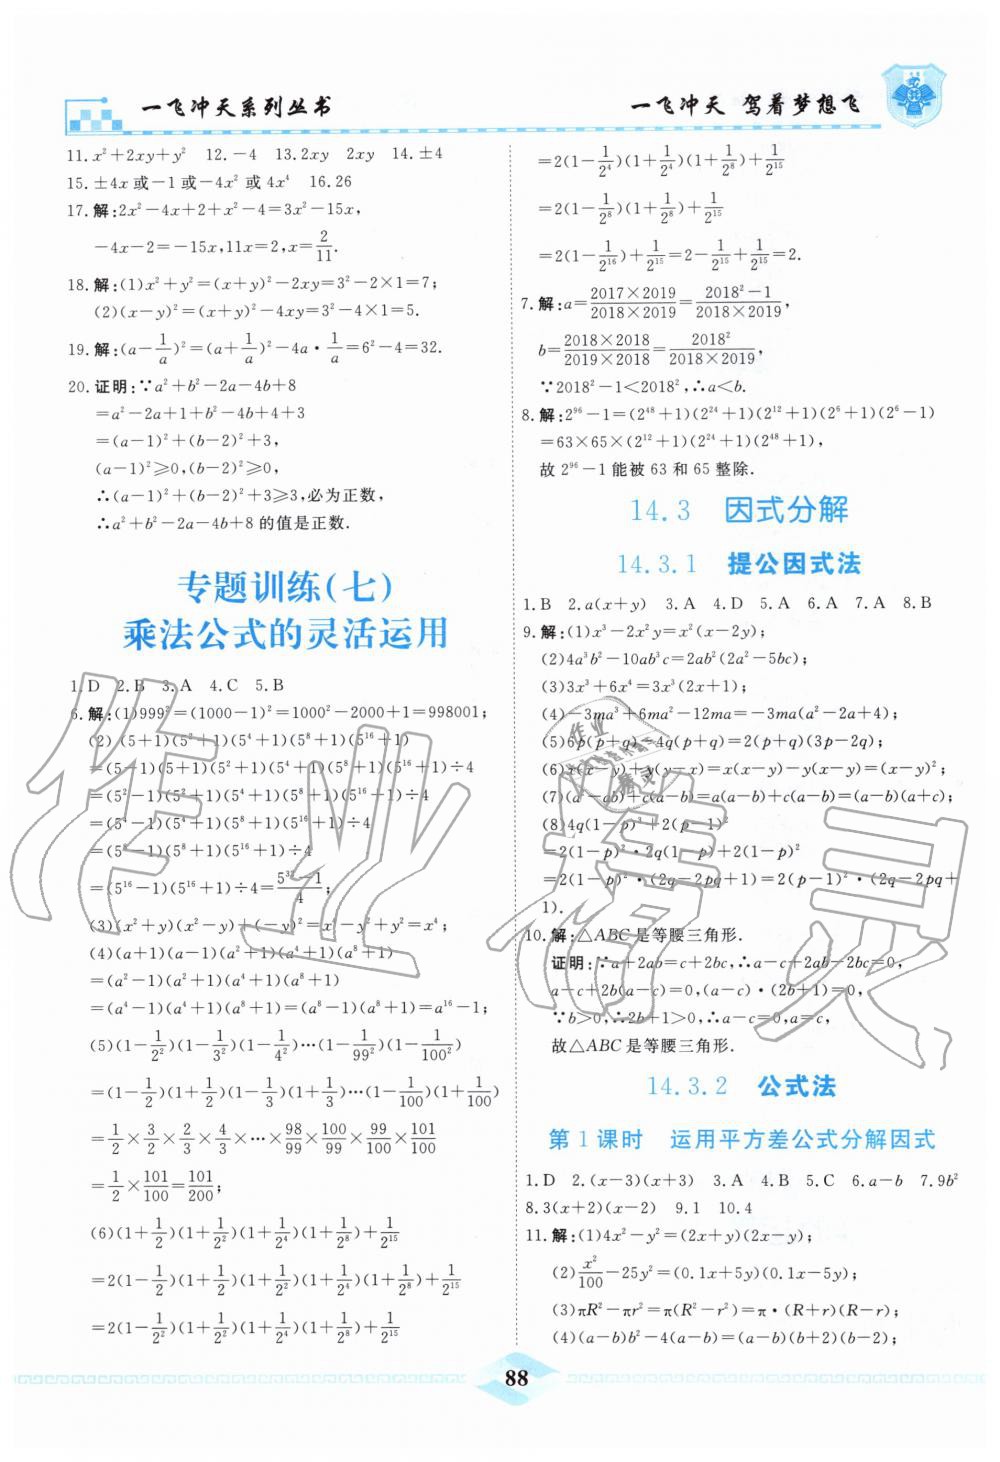 一飞冲天系列丛书
一飞冲天 驾着梦想飞
11. x²+2xy+y² 12. -4 13. 2xy 2xy 14. ±4
15. ±4x 或 -1 或 -4x² 或 4x⁴ 16. 26
17. 解: 2x²-4x+2+x²-4=3x²-15x,
-4x-2=-15x, 11x=2, x=2/11.
18. 解: (1)x²+y²=(x+y)²-2xy=3²-2×1=7;
(2)(x-y)²=(x+y)²-4xy=3²-4×1=5.
19. 解: (a-1/a)²=(a+1/a)²-4a·1/a=6²-4=32.
20. 证明: ∵a²+b²-2a-4b+8
=a²-2a+1+b²-4b+4+3
=(a-1)²+(b-2)²+3,
(a-1)²≥0, (b-2)²≥0,
∴(a-1)²+(b-2)²+3≥3, 必为正数,
∴a²+b²-2a-4b+8 的值是正数.
专题训练(七)
乘法公式的灵活运用
1. D 2. B 3. A 4. C 5. B
6. 解: (1)999²=(1000-1)²=1000²-2000+1=998001;
(2) (5+1)(5²+1)(5⁴+1)(5⁸+1)(5¹⁶+1)
=(5-1)(5+1)(5²+1)(5⁴+1)(5⁸+1)(5¹⁶+1)÷4
=(5²-1)(5²+1)(5⁴+1)(5⁸+1)(5¹⁶+1)÷4
=(5⁴-1)(5⁴+1)(5⁸+1)(5¹⁶+1)÷4
=(5⁸-1)(5⁸+1)(5¹⁶+1)÷4
=(5¹⁶-1)(5¹⁶+1)÷4=(5³²-1)/4
(3)(x²+y)(x²-y)+(-y)²=x⁴-y²+y²=x⁴;
(4)(a+1)(a-1)(a²+1)(a⁴+1)(a⁸+1)
=(a²-1)(a²+1)(a⁴+1)(a⁸+1)
=(a⁴-1)(a⁴+1)(a⁸+1)=(a⁸-1)(a⁸+1)=a¹⁶-1;
(5)(1-1/2²)(1-1/3²)(1-1/4²)…(1-1/99²)(1-1/100²)
=(1-1/2)(1+1/2)(1-1/3)(1+1/3)…(1-1/100)(1+1/100)
=1/2×3/2×2/3×4/3×…×98/99×100/99×99/100×101/100
=1/2×101/100=101/200;
(6)(1+1/2)(1+1/2²)(1+1/2⁴)(1+1/2⁸)+1/2¹⁵
=2(1-1/2)(1+1/2)(1+1/2²)(1+1/2⁴)(1+1/2⁸)+1/2¹⁵
=2(1-1/2²)(1+1/2²)(1+1/2⁴)(1+1/2⁸)+1/2¹⁵
=2(1-1/2⁴)(1+1/2⁴)(1+1/2⁸)+1/2¹⁵
=2(1-1/2⁸)(1+1/2⁸)+1/2¹⁵
=2(1-1/2¹⁶)+1/2¹⁵=2-1/2¹⁵+1/2¹⁵=2.
7. 解: a=(2017×2019)/(2018×2019)=(2018²-1)/(2018×2019),
b=(2018×2018)/(2019×2018)=2018²/(2018×2019),
∵2018²-1<2018², ∴a<b.
8. 解: 2⁹⁶-1=(2⁴⁸+1)(2²⁴+1)(2¹²+1)(2⁶+1)(2⁶-1)
=63×65×(2¹²+1)(2²⁴+1)(2⁴⁸+1),
故 2⁹⁶-1 能被 63 和 65 整除.
14.3 因式分解
14.3.1 提公因式法
1. B 2. a(x+y) 3. A 4. D 5. A 6. A 7. A 8. B
9. 解: (1)x³-2x²y=x²(x-2y);
(2)4a³b²-10ab³c=2ab²(2a²-5bc);
(3)3x³+6x⁴=3x³(1+2x);
(4)-3ma³+6ma²-12ma=-3ma(a²-2a+4);
(5)6p(p+q)-4q(p+q)=2(p+q)(3p-2q);
(6)x(x-y)+y(y-x)=x(x-y)-y(x-y)=(x-y)²;
(7)(a²-ab)+c(a-b)=a(a-b)+c(a-b)=(a-b)(a+c);
(8)4q(1-p)³+2(p-1)²
=2(1-p)²·2q(1-p)+2(1-p)²
=2(1-p)²·(2q-2pq+1)=2(1-p)²·(2q-2pq+
1).
10. 解: △ABC 是等腰三角形.
证明: ∵a+2ab=c+2bc, ∴a-c+2ab-2bc=0,
a-c+2b(a-c)=0, (a-c)·(2b+1)=0,
∵b>0, ∴2b+1>0, ∴a-c=0, a=c,
故△ABC 是等腰三角形.
14.3.2 公式法
第 1 课时 运用平方差公式分解因式
1. D 2. (x-3)(x+3) 3. A 4. B 5. C 6. a-b 7. 9b²
8. 3(x+2)(x-2) 9. 1 10. 4
11. 解: (1)4x²-y²=(2x+y)(2x-y);
(2)x²/100-25y²=(0.1x+5y)(0.1x-5y);
(3)πR²-πr²=π(R²-r²)=π·(R+r)(R-r);
(4)(a-b)b²-4(a-b)=(a-b)(b+2)(b-2);
88
作业精灵